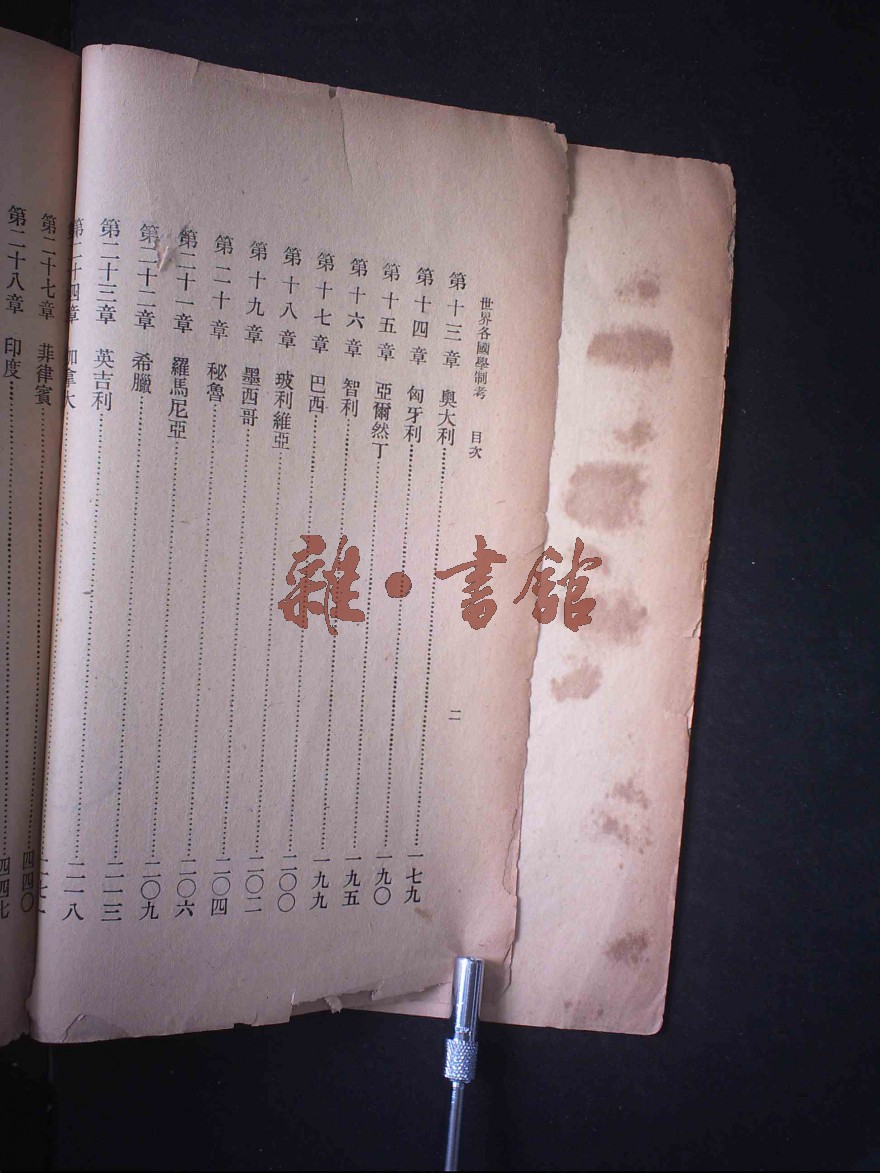 世界各國學制考 目次
二
第十三章 奧大利……一七九
第十四章 匈牙利……一九〇
第十五章 亞爾然丁……一九五
第十六章 智利……一九九
第十七章 巴西……二〇〇
第十八章 玻利維亞……二〇二
第十九章 墨西哥……二〇四
第二十章 秘魯……二〇六
第二十一章 羅馬尼亞……二〇九
第二十二章 希臘……二一三
第二十三章 英吉利……二一八
第二十四章 加拿大……
第二十七章 菲律賓……四四〇
第二十八章 印度……四四七
雜·書館